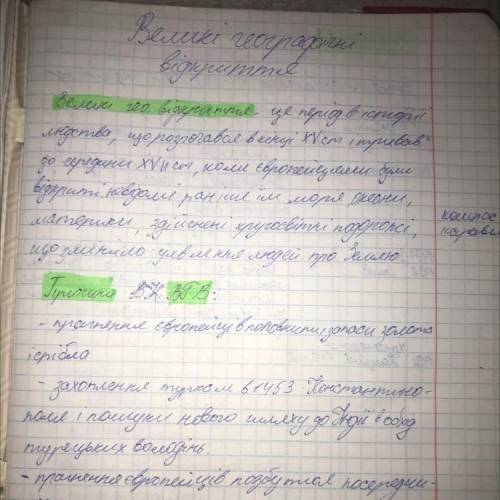 Великі географічні
відкриття
Великі гео відкриття - це період в історії
людства, що розпочався в кінці XV ст і тривав
до середини XVII ст, коли європейцями були
відкриті невідомі раніше їм моря, океани,
материки, здійснені кругосвітні подорожі,
що змінило уявлення людей про Землю.
компас
Причина ВГВ:
- прагнення європейців поповнити запаси золота
і срібла
- захоплення турками 1453 Константино-
поля і пошуки нового шляху до Індії в обхід
турецьких володінь
- прагнення європейців позбутися посередни-